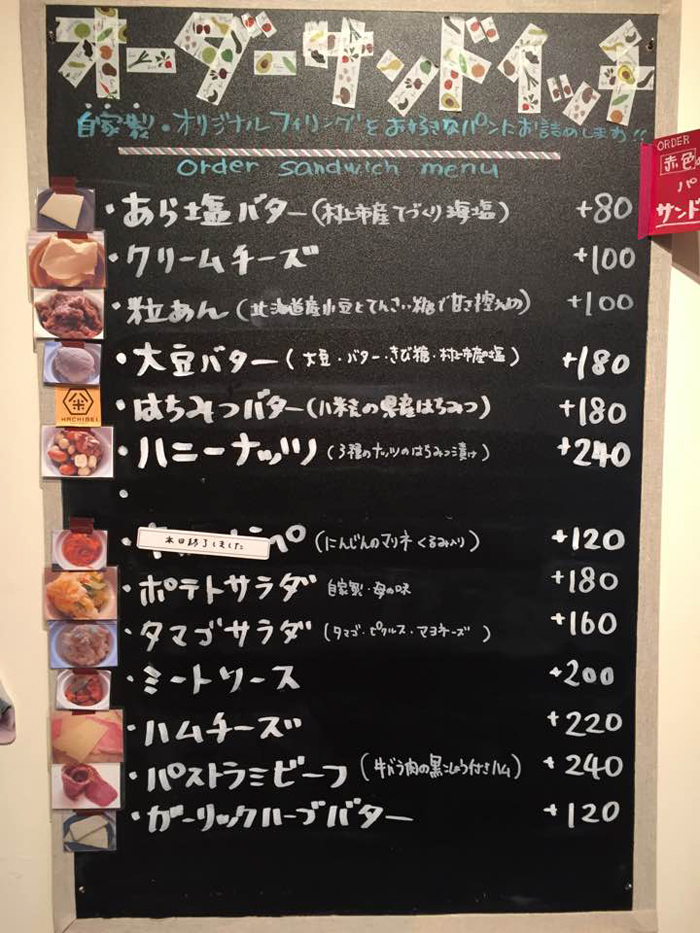 オーダーサンドイッチ
自家製・オリジナルフィリングをお好きなパンにお詰めします!!
order sandwich menu
ORDER
赤色
パ
サンド
・あら塩バター(村上市産てづくり海塩) +80
・クリームチーズ +100
・粒あん(北海道産小豆とてんさい糖で甘さ控えめ) +100
・大豆バター(大豆・バター・きび糖・村上市産塩) +180
HACHIBEI
・はちみつバター(八米の県産はちみつ) +180
・ハニーナッツ(3種のナッツのはちみつ漬け) +240
・
本日終了しました
(にんじんのマリネ くるみ入り) +120
・ポテトサラダ 自家製・母の味 +180
・タマゴサラダ(タマゴ・ピクルス・マヨネーズ) +160
・ミートソース +200
・ハムチーズ +220
・パストラミビーフ(牛バラ肉の黒こしょう付きハム) +240
・ガーリックハーブバター +120